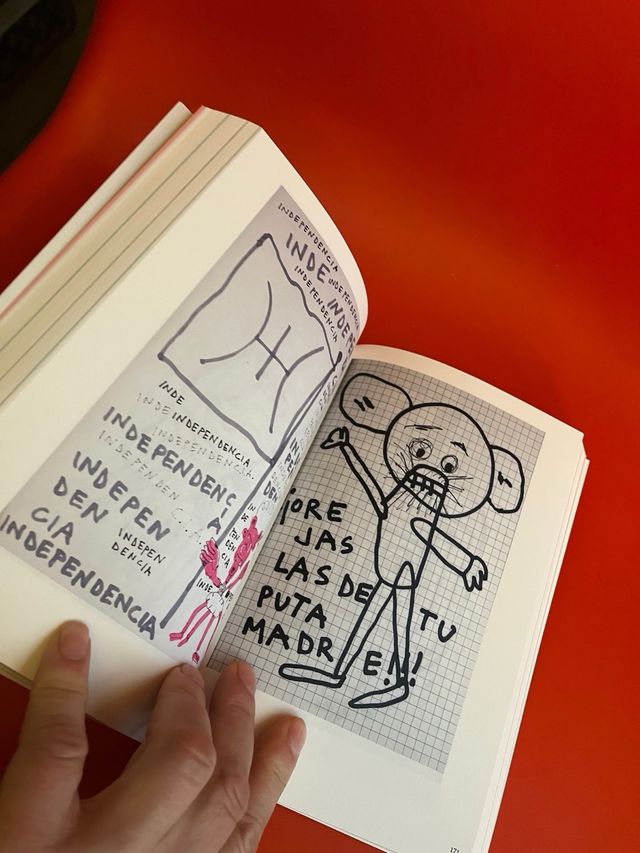 INDEPENDENCIA
INDE
INDEPENDENCIA
INDEPENDENCIA
INDEPENDENCIA
INDE
INDE INDEPENDENCIA
INDEPENDENCIA
INDEPENDENCIA
INDEPENDENC
IA
INDEPENDEN
INDEPEN
DEN
CIA
INDEPEN
DENCIA
INDEPENDENCIA
IN
DE
PEN
DEN
CIA
INDE
¡ORE
JAS
LAS DE TU
PUTA
MADRE!!!
171